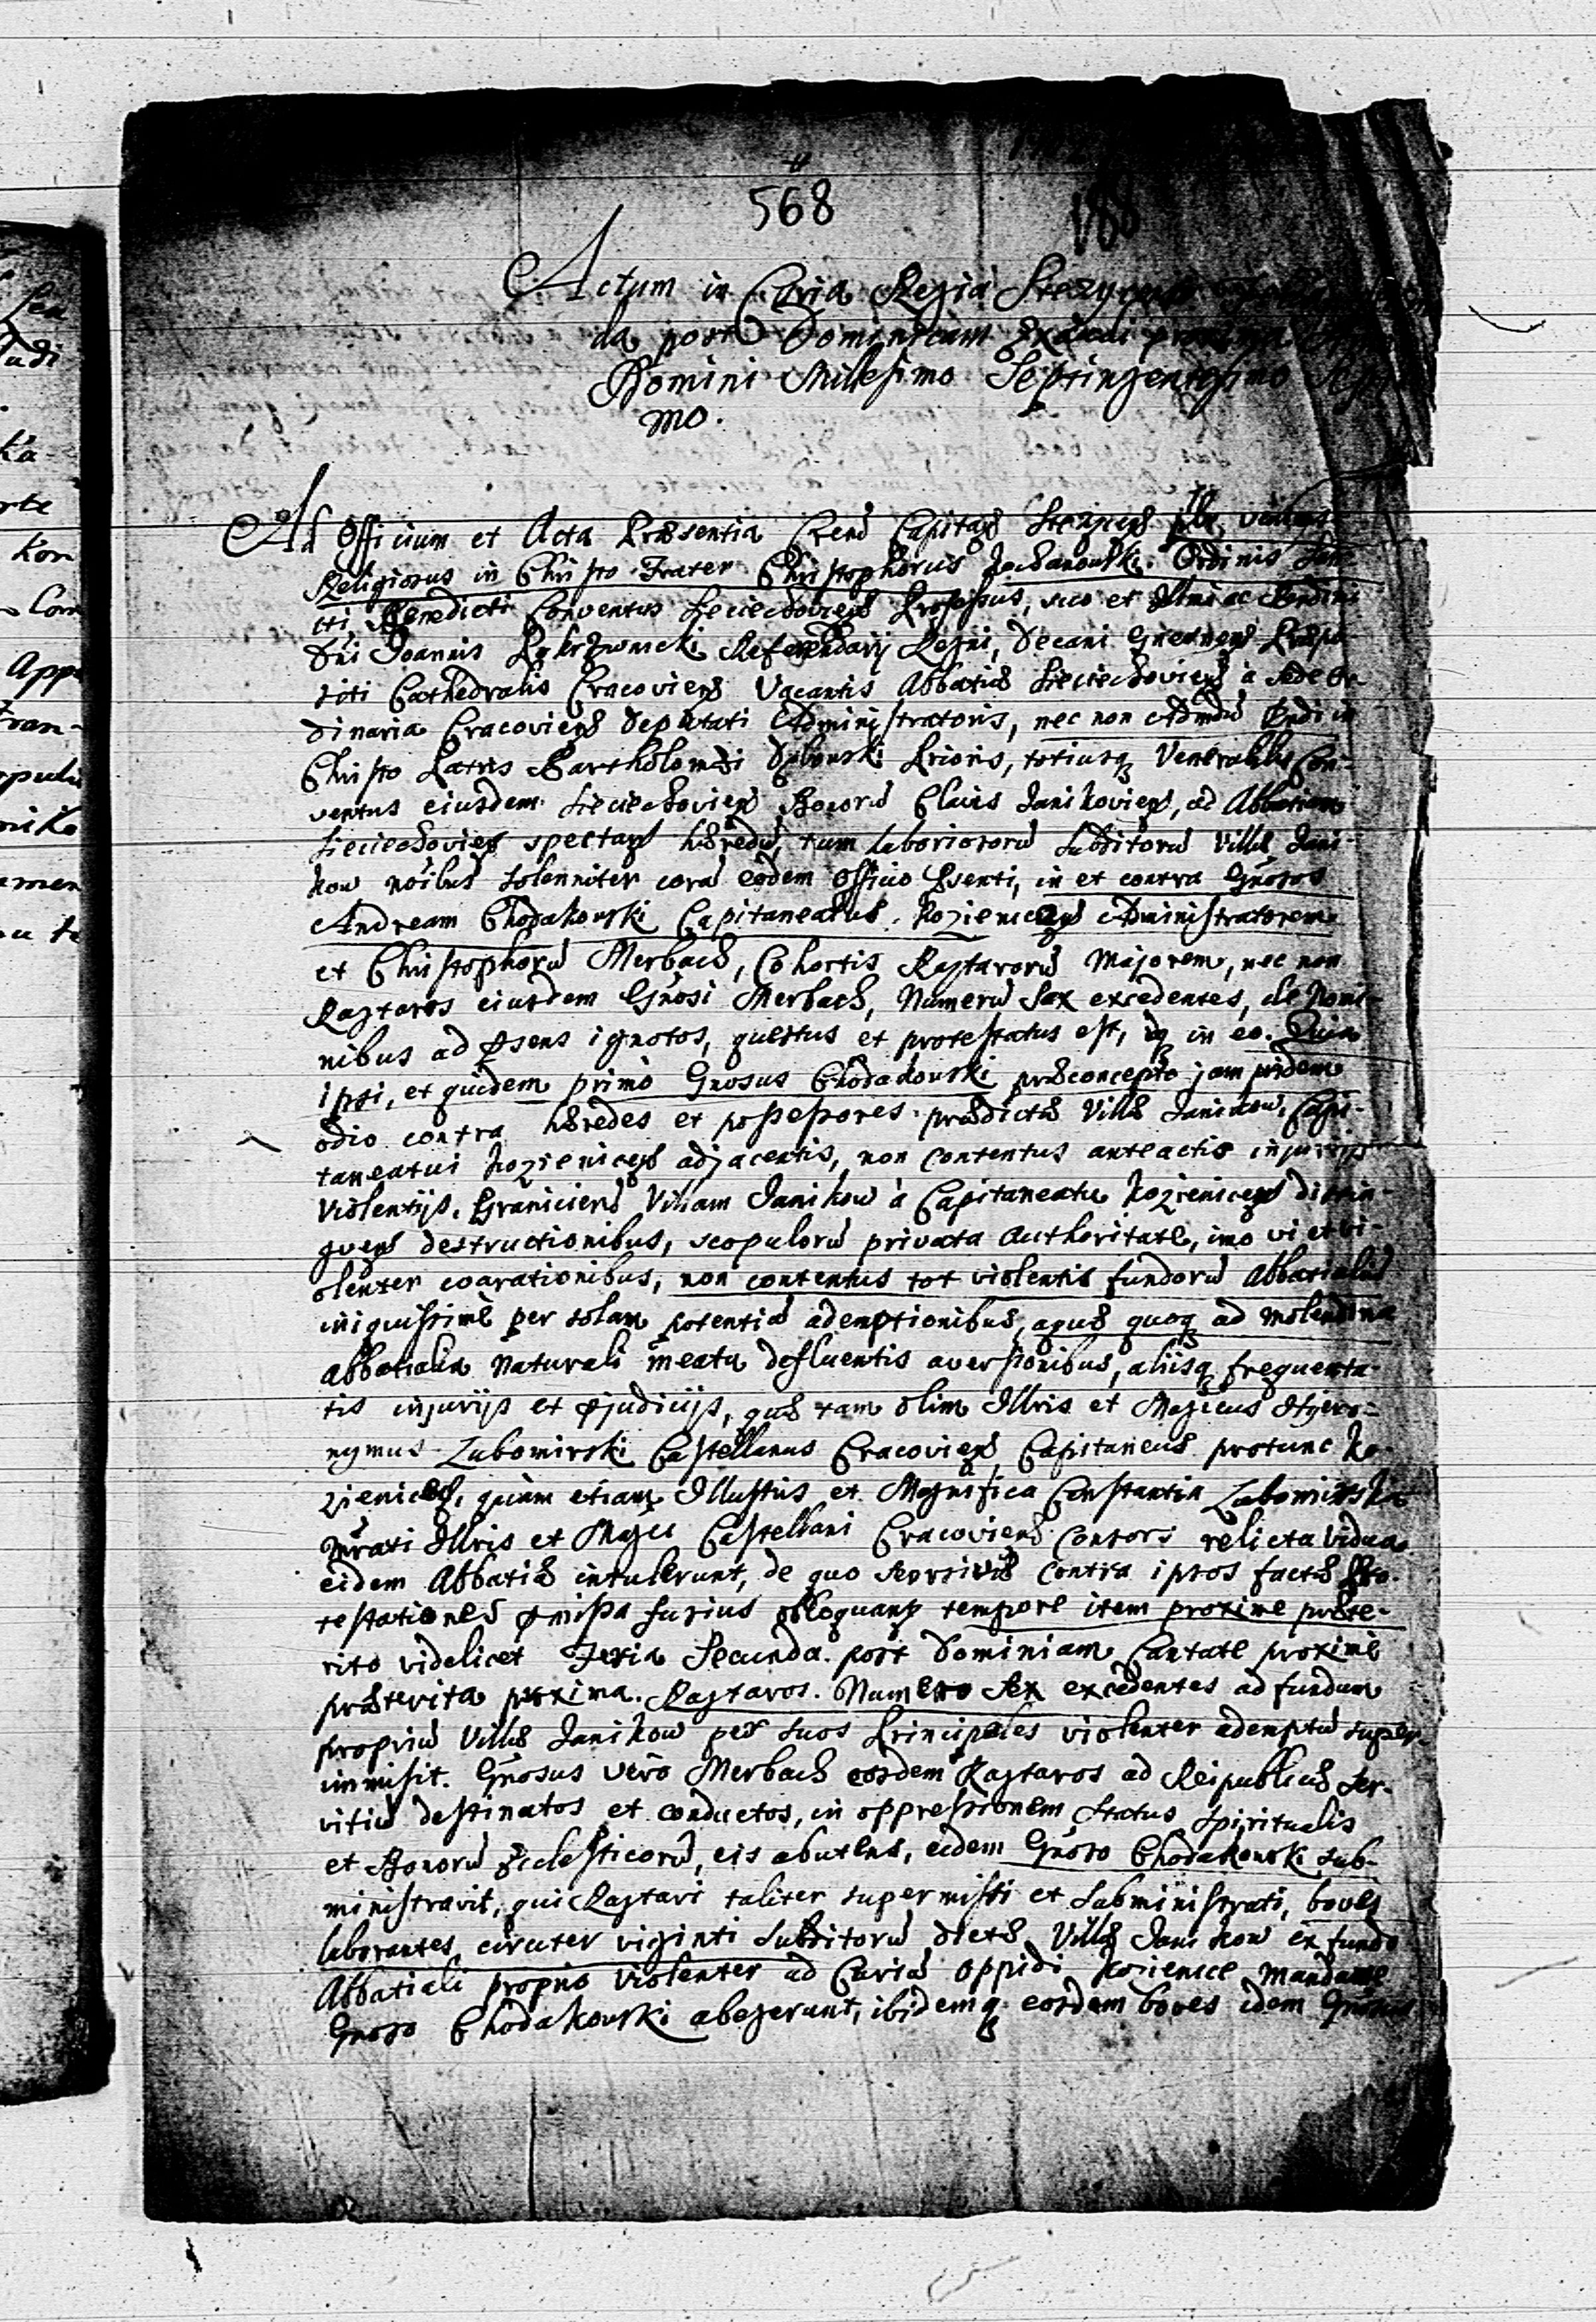 568
188
Actum in Curia Regia Stezycen
da post Dominicam Exaudi proxima
Domini Millesimo Septingentesimo Sept
mo.
Ad Officium et Acta Præsentia Crens̄ Capitaƞ Stezyceƞ
Religiosus in Christo Frater Christophorus Jochanowski Ordinis San-
cti Benedicti Conventus Sieciechovieƞ Professus, suo et Illmi ac Rendmi
Dn̄i Joannis Rokrzywnicki Referendarij Regni, Decani Gnesneƞ Præpo
siti Cathedralis Cracovieƞ Vacantis Abbatiæ Sieciechovieƞ à Sede Or-
dinaria Cracovieƞ deputati Administratoris, nec non Admdū Rndi in
Christo Patris Bartholomæi Dębowski Prioris, totiusq3 Venerabilis Con-
ventus eiusdem Sieciechovieƞ Bonorū Clavis Janikovieƞ, ad Abbatiam
Sieciechovieƞ spectaƞ hæredū, tum laboriosorū Subditorū Villæ Jani-
kow noībus solenniter corā eodem Officio Psenti, in et contra Gnosos
Andream Chodakowski Capitaneatus Kozieniceƞ Administratorem
et Christophorū Merbach, Cohortis Raytarorū Majorem, nec non
Raytaros eiusdem Gnosi Merbach, Numerū Sex excedentes, de Nomi-
nibus ad Psens ignotos, questus et protestatus est, idq3 in eo. Quia
ipsi, et quidem primò Gnosus Chodakowski præconcepto jam pridem
odio contra hæredes et possessores prædictæ Villæ Janikow, Capi-
taneatui Kozieniceƞ adjacentis, non contentus anteactis injurijs
violentijs, Granicierū Villam Janikow à Capitaneatu Kozieniceƞ distin-
gueƞ destructionibus, scopulorū privata authoritate, imo vi et vi-
olenter coarationibus, non contentus tot violentis fundorū Abbatialiū
iniquissimè per solam potentiā ademptionibus, aquæ quoq3 ad molendina
abbatialia naturali meatu defluentis aversionibus, aliisq3 frequenta-
tis injurijs et Pjudicijs, quæ tam olim Illris et Mag̃cus Hyero-
nymus Lubomirski Castellanus Cracovieƞ Capitaneus protunc Ko-
zieniceƞ, quàm etiam Illustris et Magnifica Constantia Lubomirska
mrati Illris et Mag̃ci Castellani Cracovieƞ Consors relicta vidua
eidem Abbatiæ intulerunt, de quo seorsivæ contra ipsos factæ Pro-
testationes Pmissa fusius obloquanƞ tempore item proxime præte-
rito videlicet Feria Secunda post Dominiam Cantate proximè
præterita proxima. Raytaros Numero Sex excedentes ad fundum
propriū Villæ Janikow per suos Principales violenter ademptū super-
immisit. Gnosus verò Merbach eosdem Raytaros ad Reipublicæ Ser-
vitiū destinatos et conductos, in oppressionem Status Spiritualis
et Bonorū Ecclesticorū, eis abutens, eidem Gnoso Chodakowski sub-
ministravit, qui Raytari taliter supermissi et subministrati, boves
laborantes circiter viginti Subditorū dictæ Villæ Janikow ex fundo
Abbatiali proprio violenter ad Curiā Oppidi Kozienice mandante
Gnoso Chodakowski abegerunt, ibidemq3 eosdem boves idem Gnosus